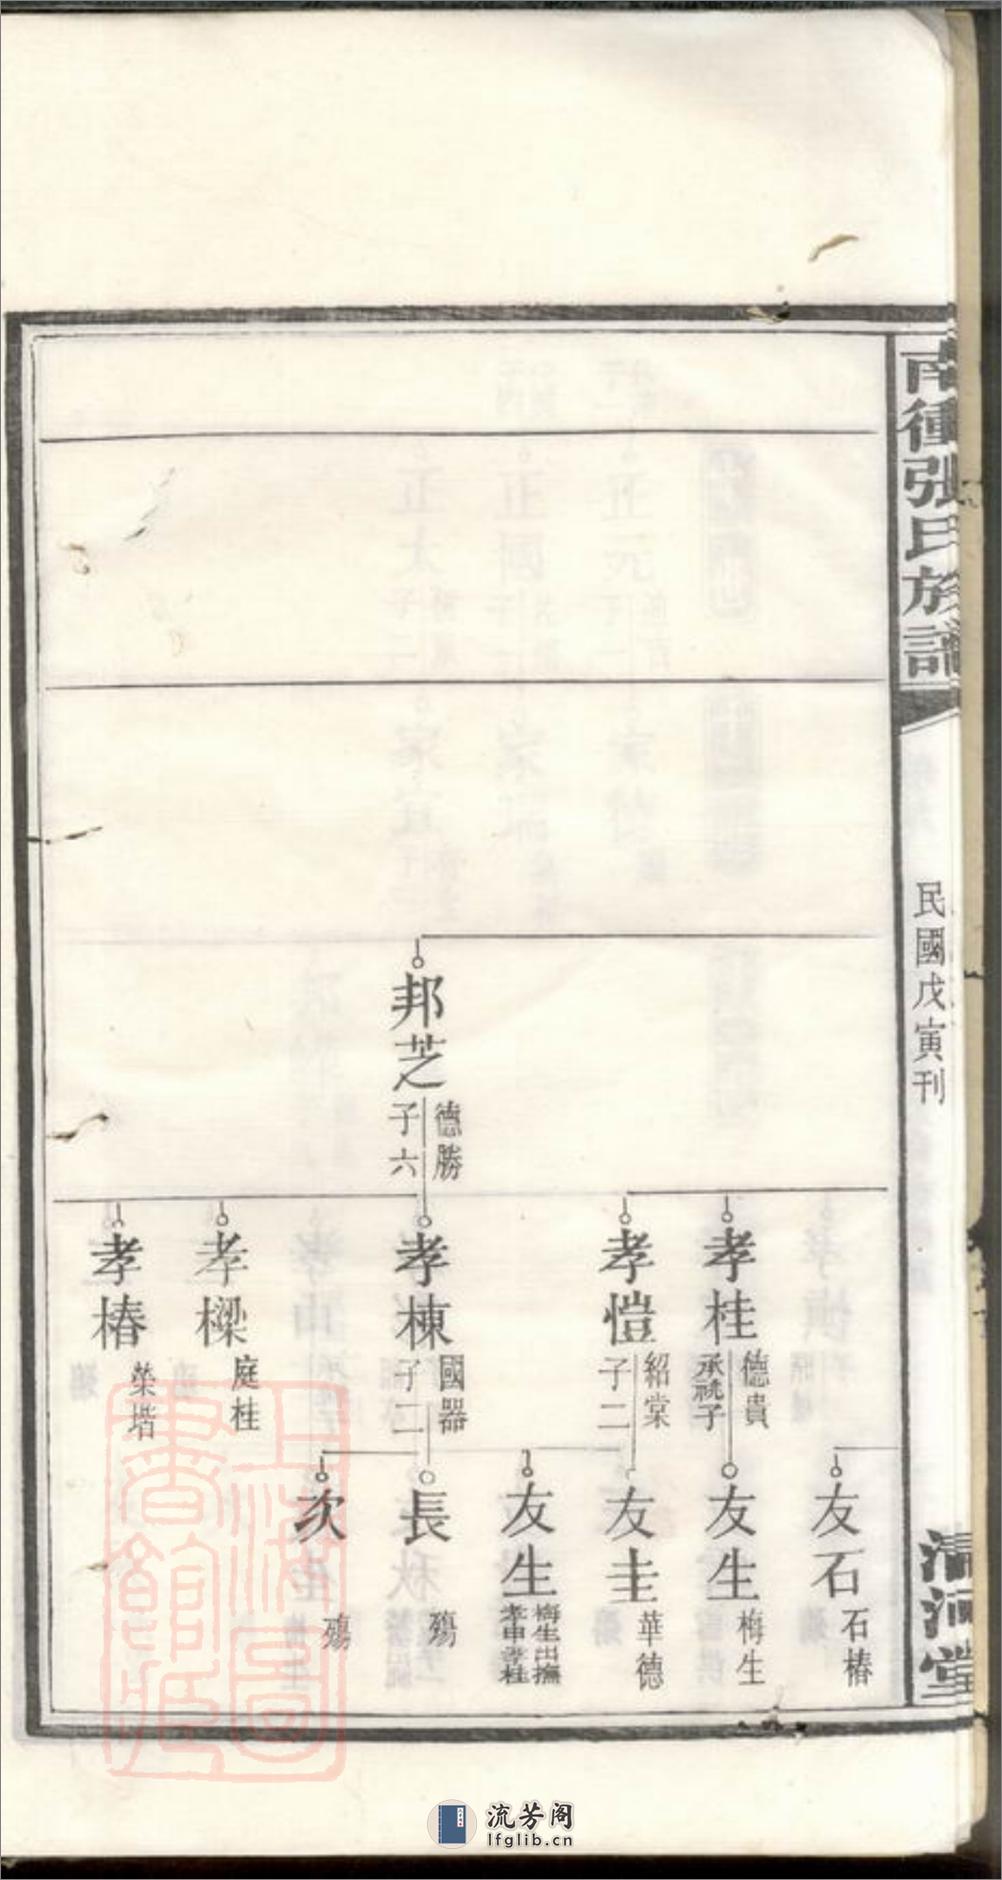 南衝張氏族譜
民國戊寅刊
清河堂
邦芝
德勝
子六
孝桂
德貴
承祧子
孝愷
紹棠
子二
孝棟
國器
子二
孝樑
庭桂
孝椿
榮堦
友石
石椿
友生
梅生
友圭
華德
友生
梅生出撫
孝申孝桂
長
殤
次
殤
上海圖書館藏
流芳阁
lfglib.cn